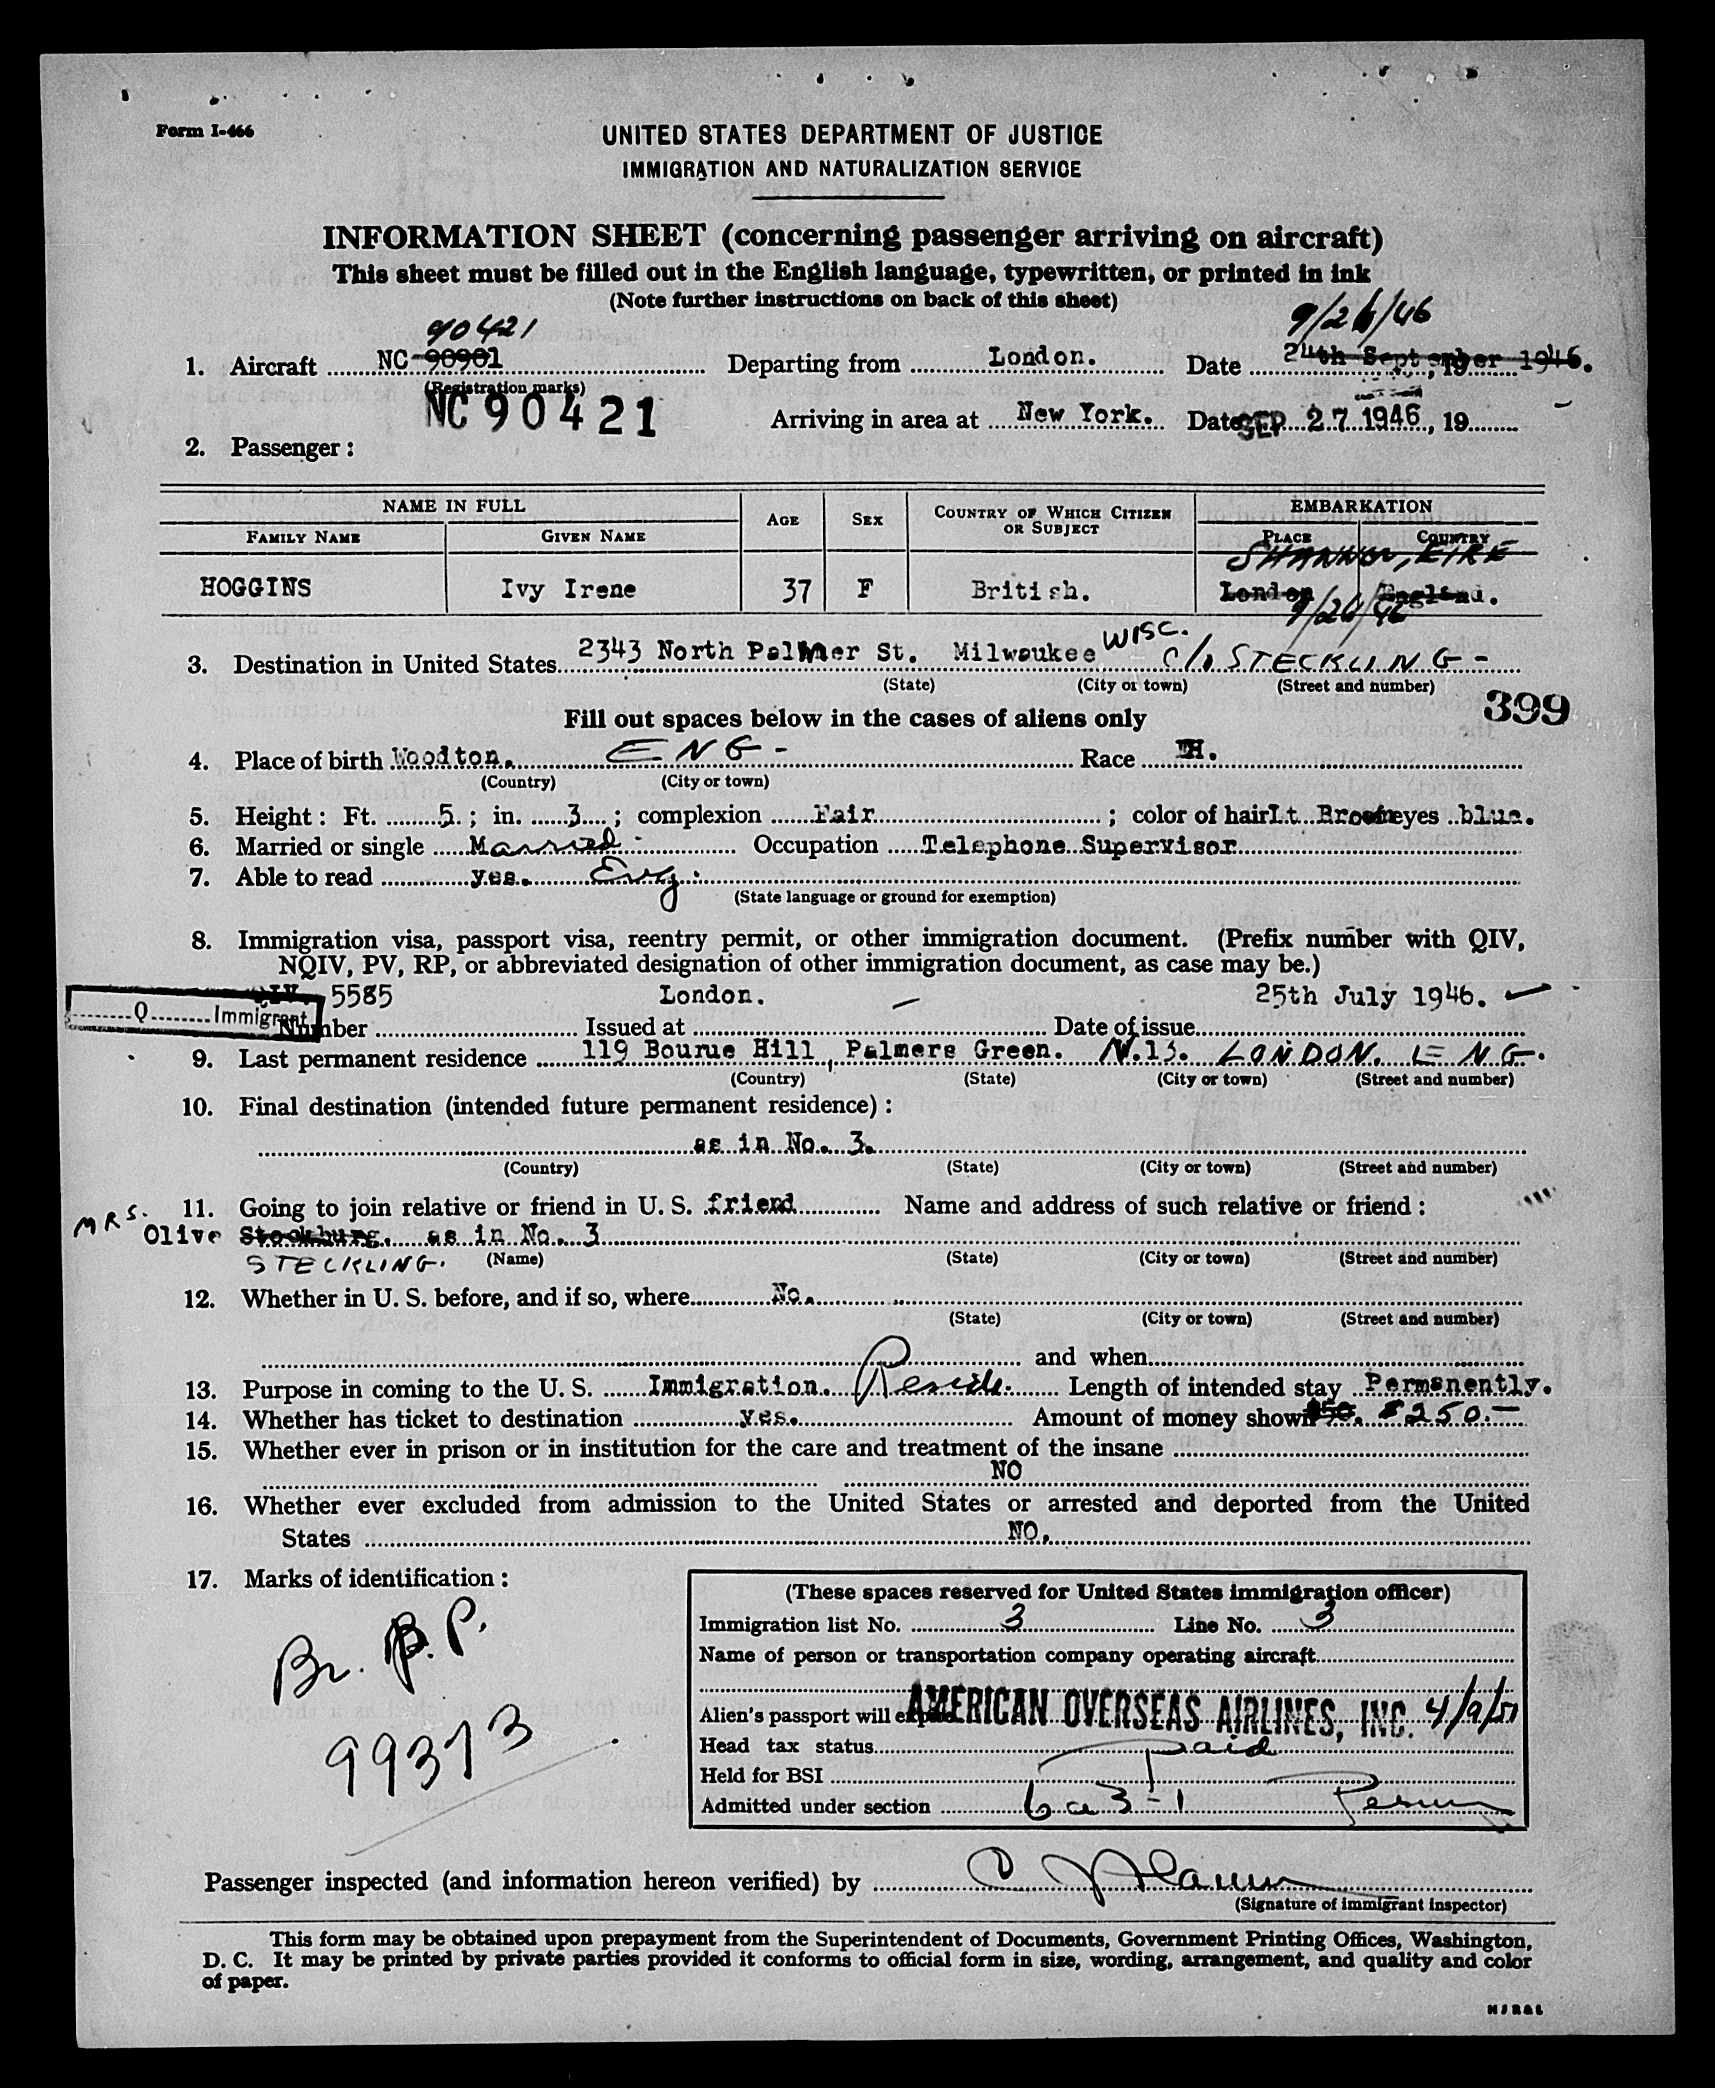 Form I-466
UNITED STATES DEPARTMENT OF JUSTICE
IMMIGRATION AND NATURALIZATION SERVICE
INFORMATION SHEET (concerning passenger arriving on aircraft)
This sheet must be filled out in the English language, typewritten, or printed in ink
(Note further instructions on back of this sheet)
90421 9/26/46
1. Aircraft NC 90901 Departing from London. Date 24th September, 19 1946.
(Registration marks)
NC 90421 Arriving in area at New York. Date SEP 27 1946, 19
2. Passenger:
NAME IN FULL AGE SEX COUNTRY OF WHICH CITIZEN OR SUBJECT EMBARKATION
FAMILY NAME GIVEN NAME PLACE COUNTRY
SHANNON, EIRE
HOGGINS Ivy Irene 37 F British. London England.
9/26/46
3. Destination in United States 2343 North Palmer St. Milwaukee WISC. c/o STECKLING -
(State) (City or town) (Street and number)
399
Fill out spaces below in the cases of aliens only
4. Place of birth Woodton. ENG - Race H.
(Country) (City or town)
5. Height: Ft. 5. ; in. 3 ; complexion Fair ; color of hair Lt. Brown eyes blue.
6. Married or single Married Occupation Telephone Supervisor
7. Able to read yes. Eng.
(State language or ground for exemption)
8. Immigration visa, passport visa, reentry permit, or other immigration document. (Prefix number with QIV,
NQIV, PV, RP, or abbreviated designation of other immigration document, as case may be.)
QIV. 5585 London. 25th July 1946.
Q Immigrant
Number Issued at Date of issue
9. Last permanent residence 119 Bourne Hill, Palmers Green. N.13. LONDON. ENG.
(Country) (State) (City or town) (Street and number)
10. Final destination (intended future permanent residence):
as in No. 3.
(Country) (State) (City or town) (Street and number)
11. Going to join relative or friend in U. S. friend Name and address of such relative or friend:
MRS. Olive Stockburg. as in No. 3
STECKLING. (Name) (State) (City or town) (Street and number)
12. Whether in U. S. before, and if so, where No.
(State) (City or town) (Street and number)
and when
13. Purpose in coming to the U. S. Immigration. Reside. Length of intended stay Permanently.
14. Whether has ticket to destination yes. Amount of money shown $50. $250.-
15. Whether ever in prison or in institution for the care and treatment of the insane
NO
16. Whether ever excluded from admission to the United States or arrested and deported from the United
States NO.
17. Marks of identification:
Br. P.P.
99373
(These spaces reserved for United States immigration officer)
Immigration list No. 3 Line No. 3
Name of person or transportation company operating aircraft
AMERICAN OVERSEAS AIRLINES, INC.
Alien's passport will expire 4/9/51
Head tax status paid
Held for BSI
Admitted under section 6a3-1
Passenger inspected (and information hereon verified) by
(Signature of immigrant inspector)
This form may be obtained upon prepayment from the Superintendent of Documents, Government Printing Offices, Washington,
D. C. It may be printed by private parties provided it conforms to official form in size, wording, arrangement, and quality and color
of paper.